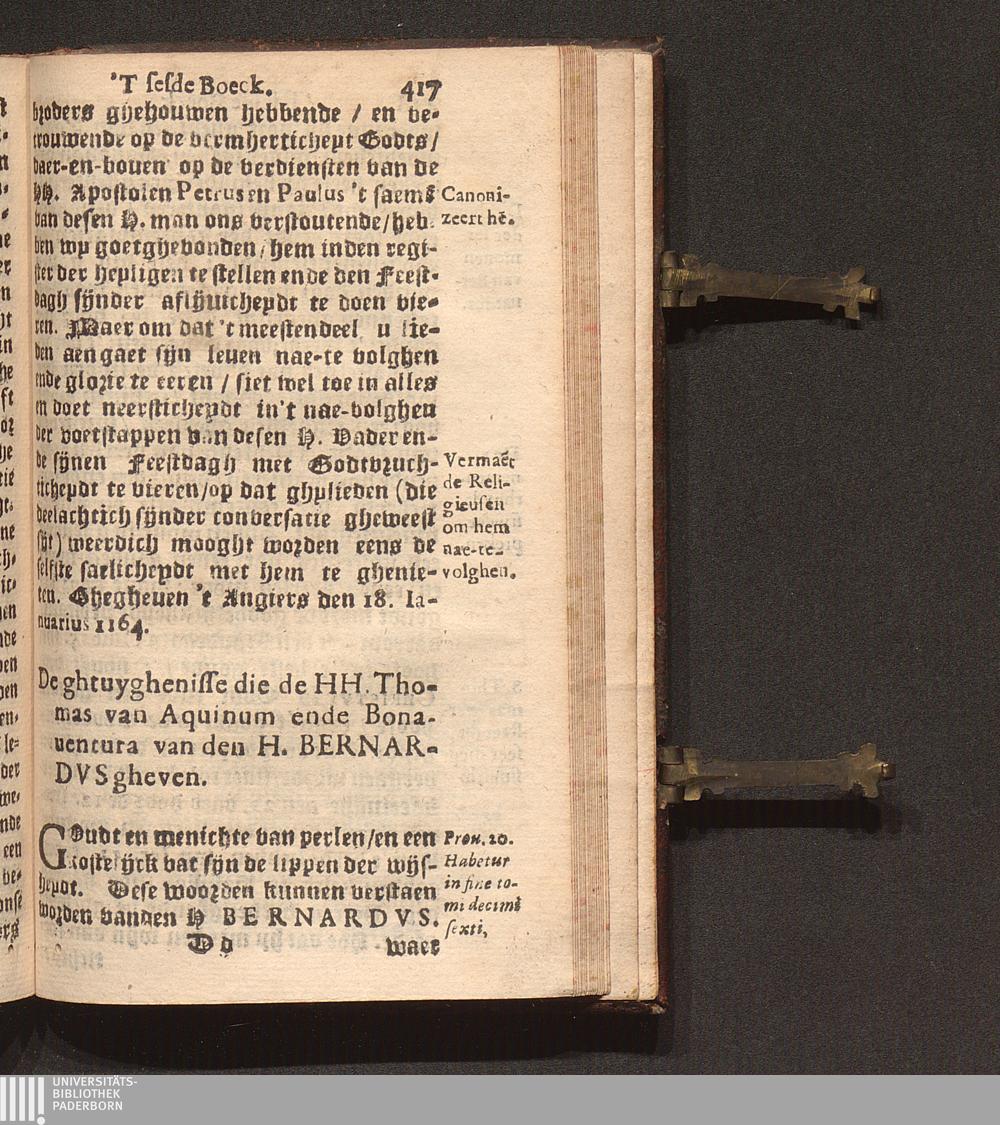 'T sesde Boeck. 417
broders ghehouwen hebbende / en be-
trouwende op de bermhertichept Godts /
daer-en-bouen op de verdiensten van de
HH. Apostolen Petrus en Paulus 't saems
van desen H. man ons verstoutende / heb-
ben wp goetghevonden / hem inden regi-
ster der hepligen te stellen ende den Feest-
dagh sijnder aflijuichepdt te doen vie-
ren. Maer om dat 't meestendeel u lie-
den aengaet sijn leuen nae-te volghen
ende glorie te eeren / siet wel toe in alles
en doet neerstichepdt in't nae-volghen
der voetstappen van desen H. Vader en-
de sijnen Feestdagh met Godtvruch-
tichepdt te vieren / op dat ghplieden (die
deelachtich sijnder conversatie gheweest
sijt) weerdich mooght worden eens de
selfste saelichepdt met hem te ghenie-
ten. Ghegheuen 't Angiers den 18. Ia-
nuarius 1164.
Canoni-
zeert hē.
Vermaēt
de Reli-
gieusen
om hem
nae-te-
volghen.
De ghtuyghenisse die de HH. Tho-
mas van Aquinum ende Bona-
uentura van den H. BERNAR-
DVS gheven.
GOudt en menichte van perlen / en een
kostelijck vat sijn de lippen der wijs-
hepdt. Dese woorden kunnen verstaen
worden vanden H BERNARDVS.
Dd waer
Prou. 20.
Habetur
in fine to-
mi decimi
sexti,
UNIVERSITÄTS-
BIBLIOTHEK
PADERBORN